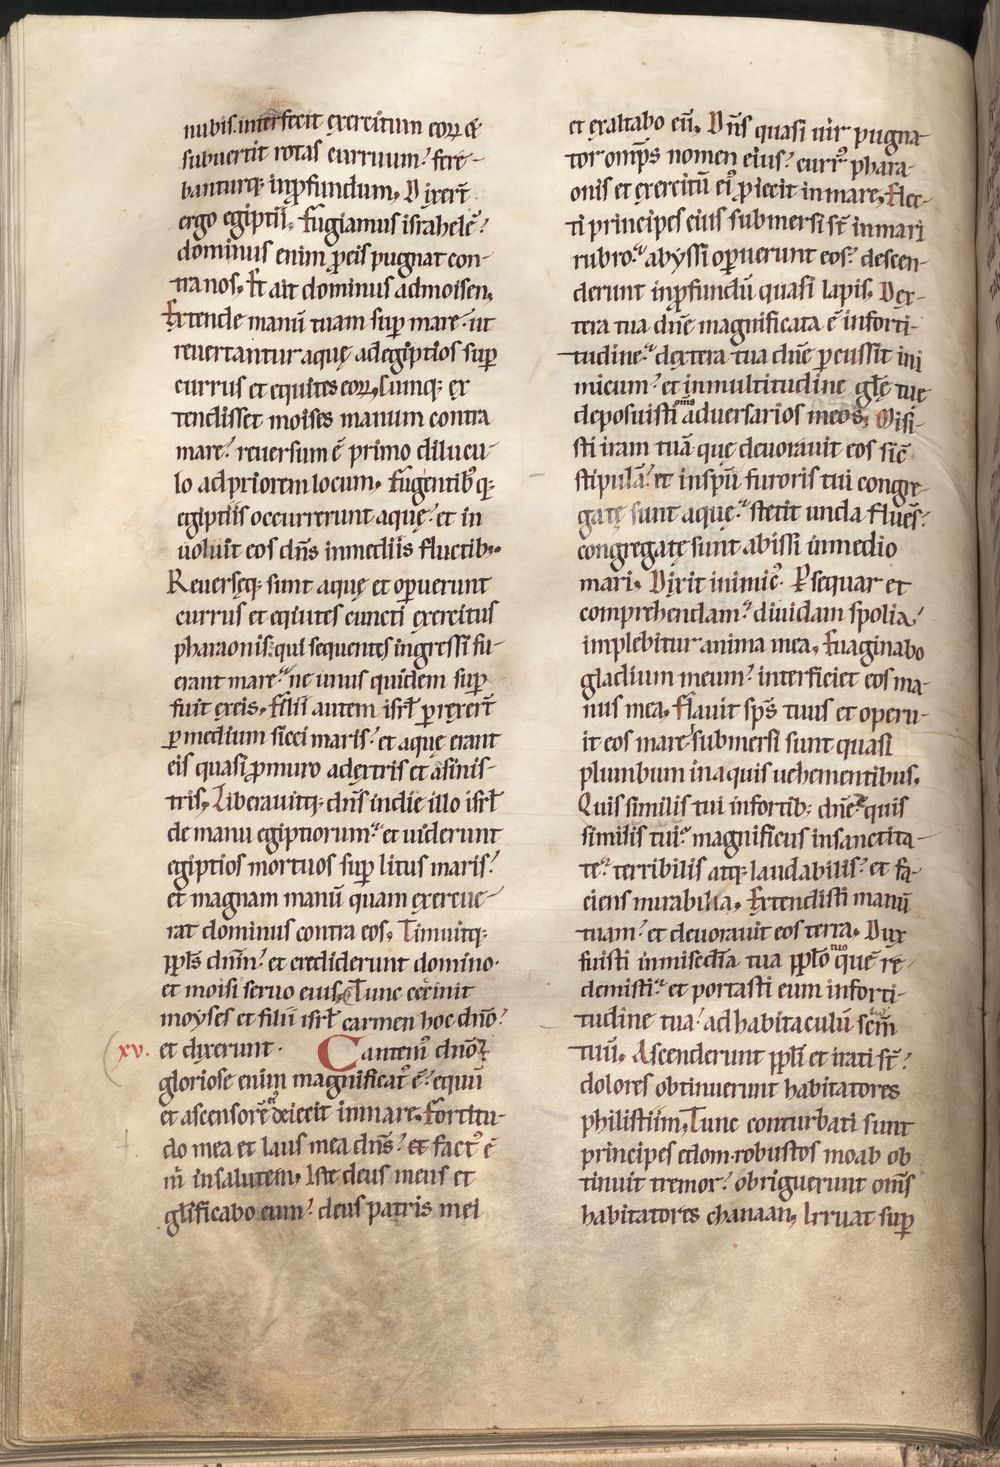 nubis. interfecit exercitum eoꝝ &
subuertit rotas curruum? fere-
banturq; inꝓfundum. Dixer̄t
ergo egiptii. Fugiamus israhelē?
dominus enim ꝓ eis pugnat con-
tra nos. Et ait dominus admoisen.
Extende manū tuam suꝑ mare. ut
reuertantur aquę adegiptios suꝑ
currus et equites eoꝝ. Cunq; ex
tendisset moises manum contra
mare? reuersum ē primo dilucu-
lo adpriorem locum. Fugentibꝰq;
egiptiis occurrerunt aquę? et in
uoluit eos dn̄s inmediis fluctib;.
Reuersęq; sunt aquę et oꝑuerunt
currus et equites cuncti exercitus
pharaonis. qui sequentes ingressi fu-
erant mare. ne unus quidem suꝑ
fuit exeis. Filii autem isrl̄ ꝑrexer̄t
ꝑ medium sicci maris. et aquę erant
eis quasi ꝓ muro adextris et asinis-
tris. Liberauitq; dn̄s indie illo isrl̄
de manu egiptiorum. et uiderunt
egiptios mortuos suꝑ litus maris?
et magnam manū quam exercue-
rat dominus contra eos. Timuitq;
ppl̄s dnm̄? et crediderunt domino.
et moisi seruo eius. Tunc cecinit
moyses et filii isrl̄ carmen hoc dnō?
xv. et dixerunt. Cantemꝰ dnō?
gloriose enim magnificatꝰ ē? equū
et ascensorē deiecit inmare. Fortitu-
do mea et laus mea dn̄s? et factꝰ ē
m̄ insalutem. Iste deus meus et
gl̄ificabo eum? deus patris mei
et exaltabo eū. Dn̄s quasi uir pugna-
tor omp̄s nomen eius? currꝰ phara-
onis et exercitū eiꝰ ꝓiecit inmare. Elec-
ti principes eius submersi sт̄ inmari
rubro. abyssi oꝑuerunt eos? descen-
derunt inꝓfundū quasi lapis. Dex-
tera tua dn̄e magnificata ē inforti-
tudine. dextera tua dn̄e ꝑcussit ini
micum? et inmultitudine gl̄ę tuę
deposuisti om̄s aduersarios meos. Misi-
sti iram tuā que deuorauit eos sic̄
stipulā? et inspū furoris tui congre-
gatę sunt aquę. stetit unda flues̄?
congregatę sunt abissi inmedio
mari. Dixit inimicꝰ. Ꝑsequar et
comprehendam. diuidam spolia?
implebitur anima mea. Euaginabo
gladium meum? interficiet eos ma-
nus mea. Flauit sp̄s tuus et operu-
it eos mare. submersi sunt quasi
plumbum inaquis uehementibus.
Quis similis tui infortib; dn̄e. quis
similis tui. magnificus insanctita-
te. terribilis atq; laudabilis? et fa-
ciens mirabilia. Extendisti manū
tuam? et deuorauit eos terra. Dux
fuisti inmisedīa tua ppl̄o tuo quē re-
demisti. et portasti eum inforti-
tudine tua? ad habitaculū scm̄
tuū. Ascenderunt ppl̄i et irati st̄?
dolores obtinuerunt habitatores
philistiim. Tunc conturbati sunt
principes edom. robustos moab ob
tinuit tremor? obriguerunt om̄s
habitatores chanaan. Irruat suꝑ